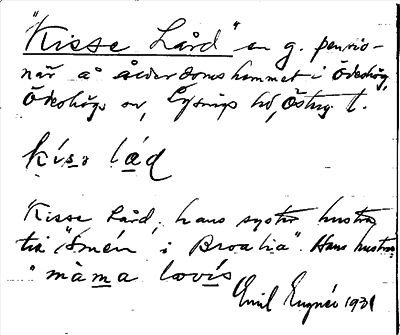 "Kisse Lård" en g. pensio-
när å ålderdomshemmet i Ödeshög,
Ödeshögs sn, Lysings hd, Österg. l.
kísə låd
Kisse Lård, hans syster hustru
till "Smén i Broalia". Hans hustru:
"måma lovís
Emil Eugnér 1931